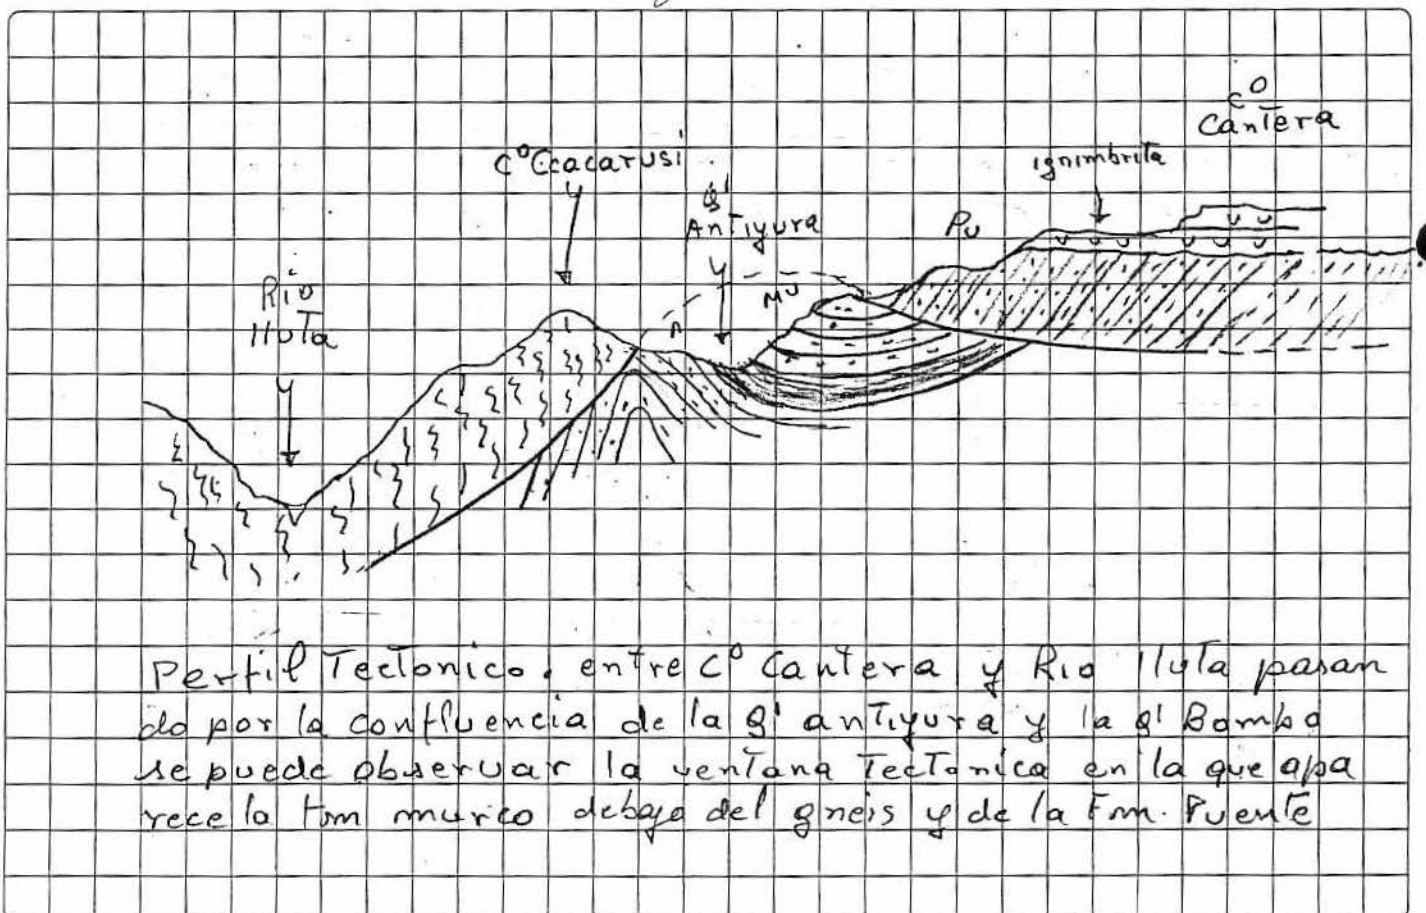 C° Cantera
C° Ccacarusi
ignimbrita
Q' Antiyura
Pu
Río
lluta
Mu
Perfil Tectonico, entre C° Cantera y Rio lluta pasan
do por la confluencia de la Q' antiyura y la Q' Bomba
se puede observar la ventana Tectonica en la que apa
rece la Fm murco debajo del gneis y de la Fm. Puente